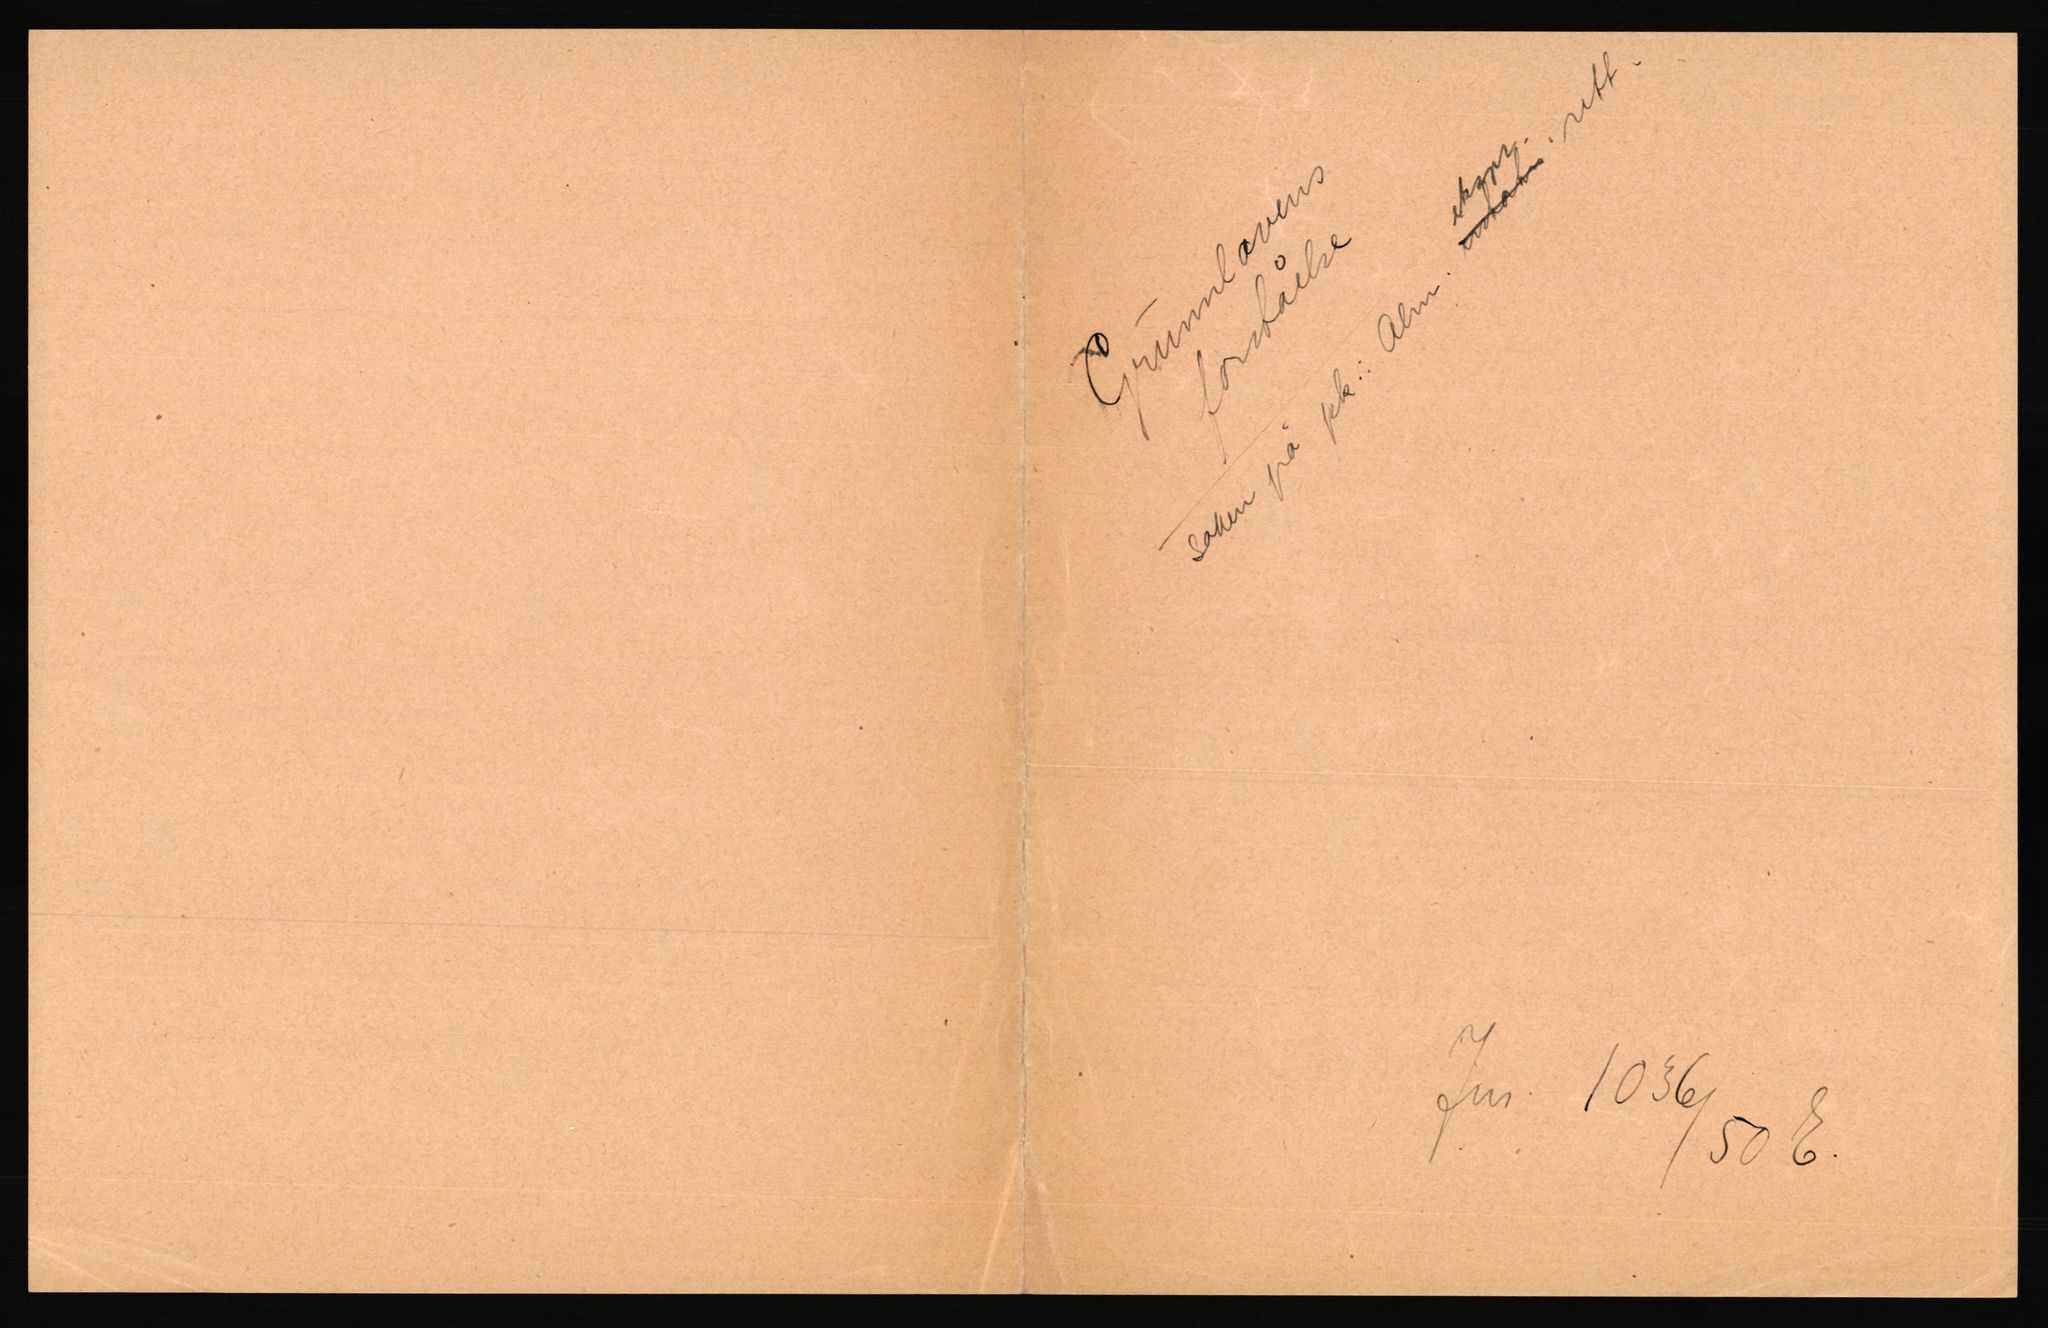 Grunnlovens
forståelse
saken på pk.: Alm. ekspr. rett.
Jnr. 1036/50 E.